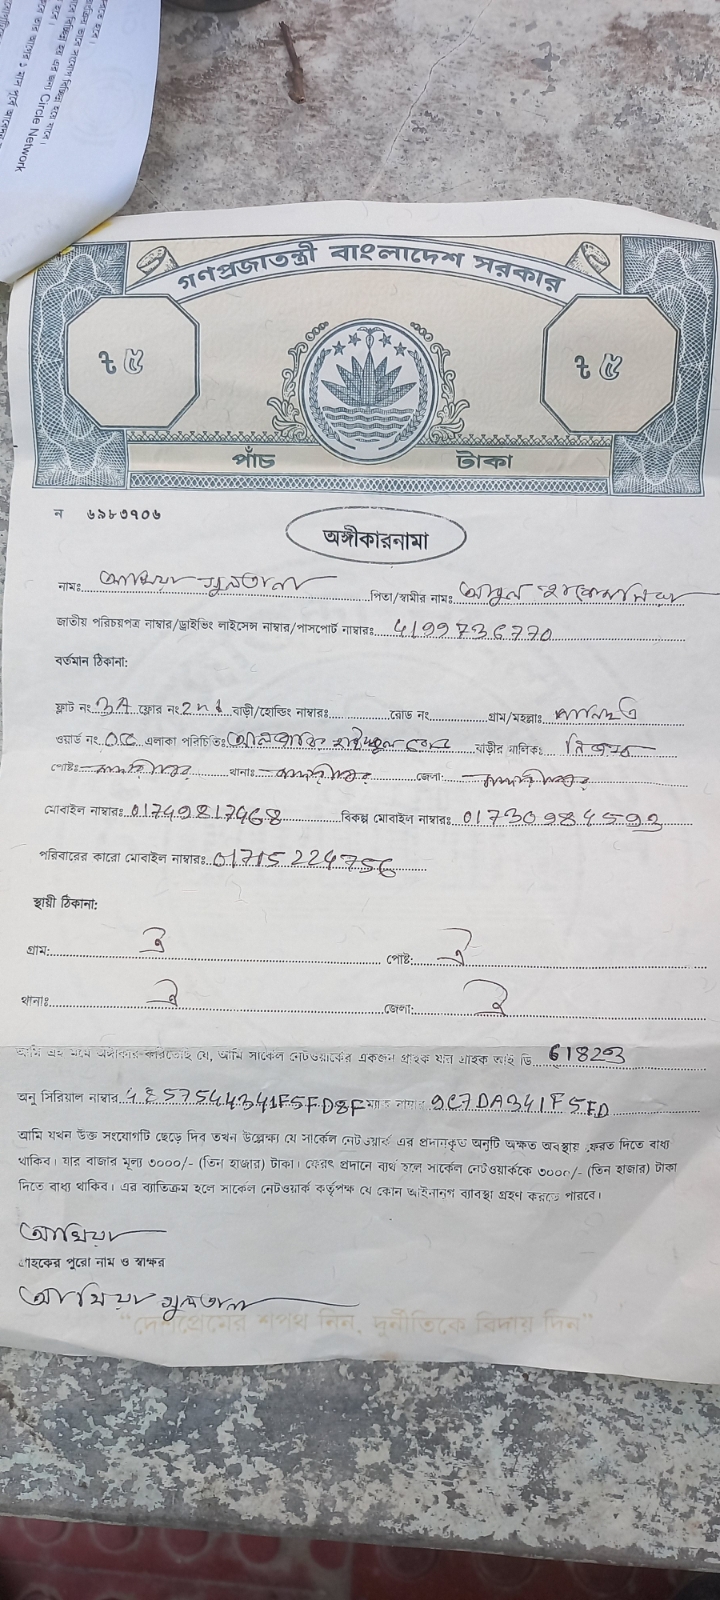 Circle Network
গণপ্রজাতন্ত্রী বাংলাদেশ সরকার
৳ ৫ ৳ ৫
পাঁচ টাকা
ন ৬৯৮৩৭০৬
অঙ্গীকারনামা
নামঃ আখিয়া সুলতানা পিতা/স্বামীর নাম: আবুল
জাতীয় পরিচয়পত্র নাম্বার/ড্রাইভিং লাইসেন্স নাম্বার/পাসপোর্ট নাম্বারঃ 4199736770
বর্তমান ঠিকানা:
ফ্লাট নং 3A ফ্লোর নং 2nd বাড়ী/হোল্ডিং নাম্বারঃ রোড নং গ্রাম/মহল্লাঃ
ওয়ার্ড নং 05 এলাকা পরিচিতিঃ বাড়ীর মালিক:
পোষ্টঃ মাদারীপুর থানাঃ মাদারীপুর জেলা: মাদারীপুর
মোবাইল নাম্বারঃ 01749817468 বিকল্প মোবাইল নাম্বারঃ 01730984593
পরিবারের কারো মোবাইল নাম্বারঃ 01715224756
স্থায়ী ঠিকানা:
গ্রাম: ঐ পোষ্ট: ঐ
থানাঃ ঐ জেলা: ঐ
আমি এই মর্মে অঙ্গীকার করিতেছি যে, আমি সার্কেল নেটওয়ার্কের একজন গ্রাহক যার গ্রাহক আই ডি 61823
অনু সিরিয়াল নাম্বার 4857544341F5FD8F ম্যাক নাম্বার 9C7DA341F5FD
আমি যখন উক্ত সংযোগটি ছেড়ে দিব তখন উল্লেক্ষ্য যে সার্কেল নেটওয়ার্ক এর প্রদানকৃত অনুটি অক্ষত অবস্থায় ফেরত দিতে বাধ্য
থাকিব। যার বাজার মূল্য ৩০০০/- (তিন হাজার) টাকা। ফেরৎ প্রদানে ব্যর্থ হলে সার্কেল নেটওয়ার্ককে ৩০০০/- (তিন হাজার) টাকা
দিতে বাধ্য থাকিব। এর ব্যাতিক্রম হলে সার্কেল নেটওয়ার্ক কর্তৃপক্ষ যে কোন আইনানুগ ব্যাবস্থা গ্রহণ করতে পারবে।
আখিয়া
গ্রাহকের পুরো নাম ও স্বাক্ষর
আখিয়া সুলতানা
“দেশপ্রেমের শপথ নিন, দুর্নীতিকে বিদায় দিন”